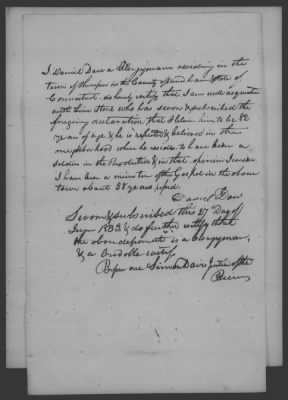 I Daniel Dow a Clergyman residing in the
town of Thompson in the County of Windham & State of
Connecticut do hereby certify that I am well acquainted
with who has sworn & subscribed the
foregoing declaration that I believe him to be 82
years of age & he is reputed & believed in the
neighborhood where he resides to have been a
soldier in the Revolution & in that opinion I concur
I have been a minister of the Gospel in the above
town about 38 years past.
Daniel Dow
Sworn & subscribed this 27th Day of
1833 & I do further certify that
the above deponent is a Clergyman,
& a credible witness
Before me Simon Davis Justice of the
Peace